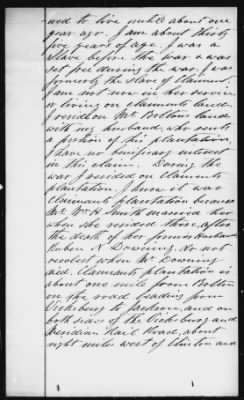 ued to live until about one
year ago. I am about thirty
five years of age. I was a
slave before the war & was
set free during the war. I was
formerly the slave of Claimant.
I am not now in her service
or living on claimants land.
I reside on Mr Boltons land
with my husband, who rents
a portion of his plantation,
I have no beneficial interest
in this claim. During the
war I resided on Claimants
plantation. I know it was
Claimants plantation because
Mr. Wm H. Smith married her
when she resided there, after
the death of her former husband
Ruben A Downing. Do not
recolect when Mr Downing
died. Claimants plantation is
about one mile from Bolton
on the road leading from
Vicksburg to Jackson, and on
both sides of the Vicksburg and
Meridian Rail Road, about
eight miles west of Clinton and